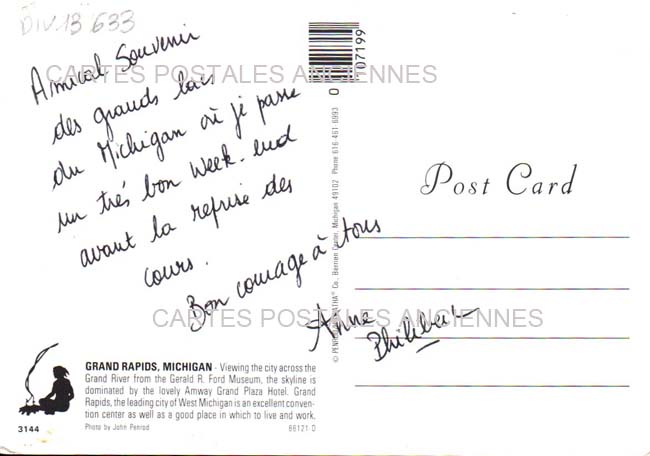 DIV.13 633
Amical Souvenir
des grands lacs
du Michigan où je passe
un très bon week-end
avant la reprise des
cours.
Bon courage à tous
Anne
CARTES POSTALES ANCIENNES
CARTES POSTALES ANCIENNES
0 07199
Co., Berrien Center, Michigan 49102 Phone 616-461-6993
Post Card
GRAND RAPIDS, MICHIGAN - Viewing the city across the
Grand River from the Gerald R. Ford Museum, the skyline is
dominated by the lovely Amway Grand Plaza Hotel. Grand
Rapids, the leading city of West Michigan is an excellent conven-
tion center as well as a good place in which to live and work.
3144
Photo by John Penrod
66121 D